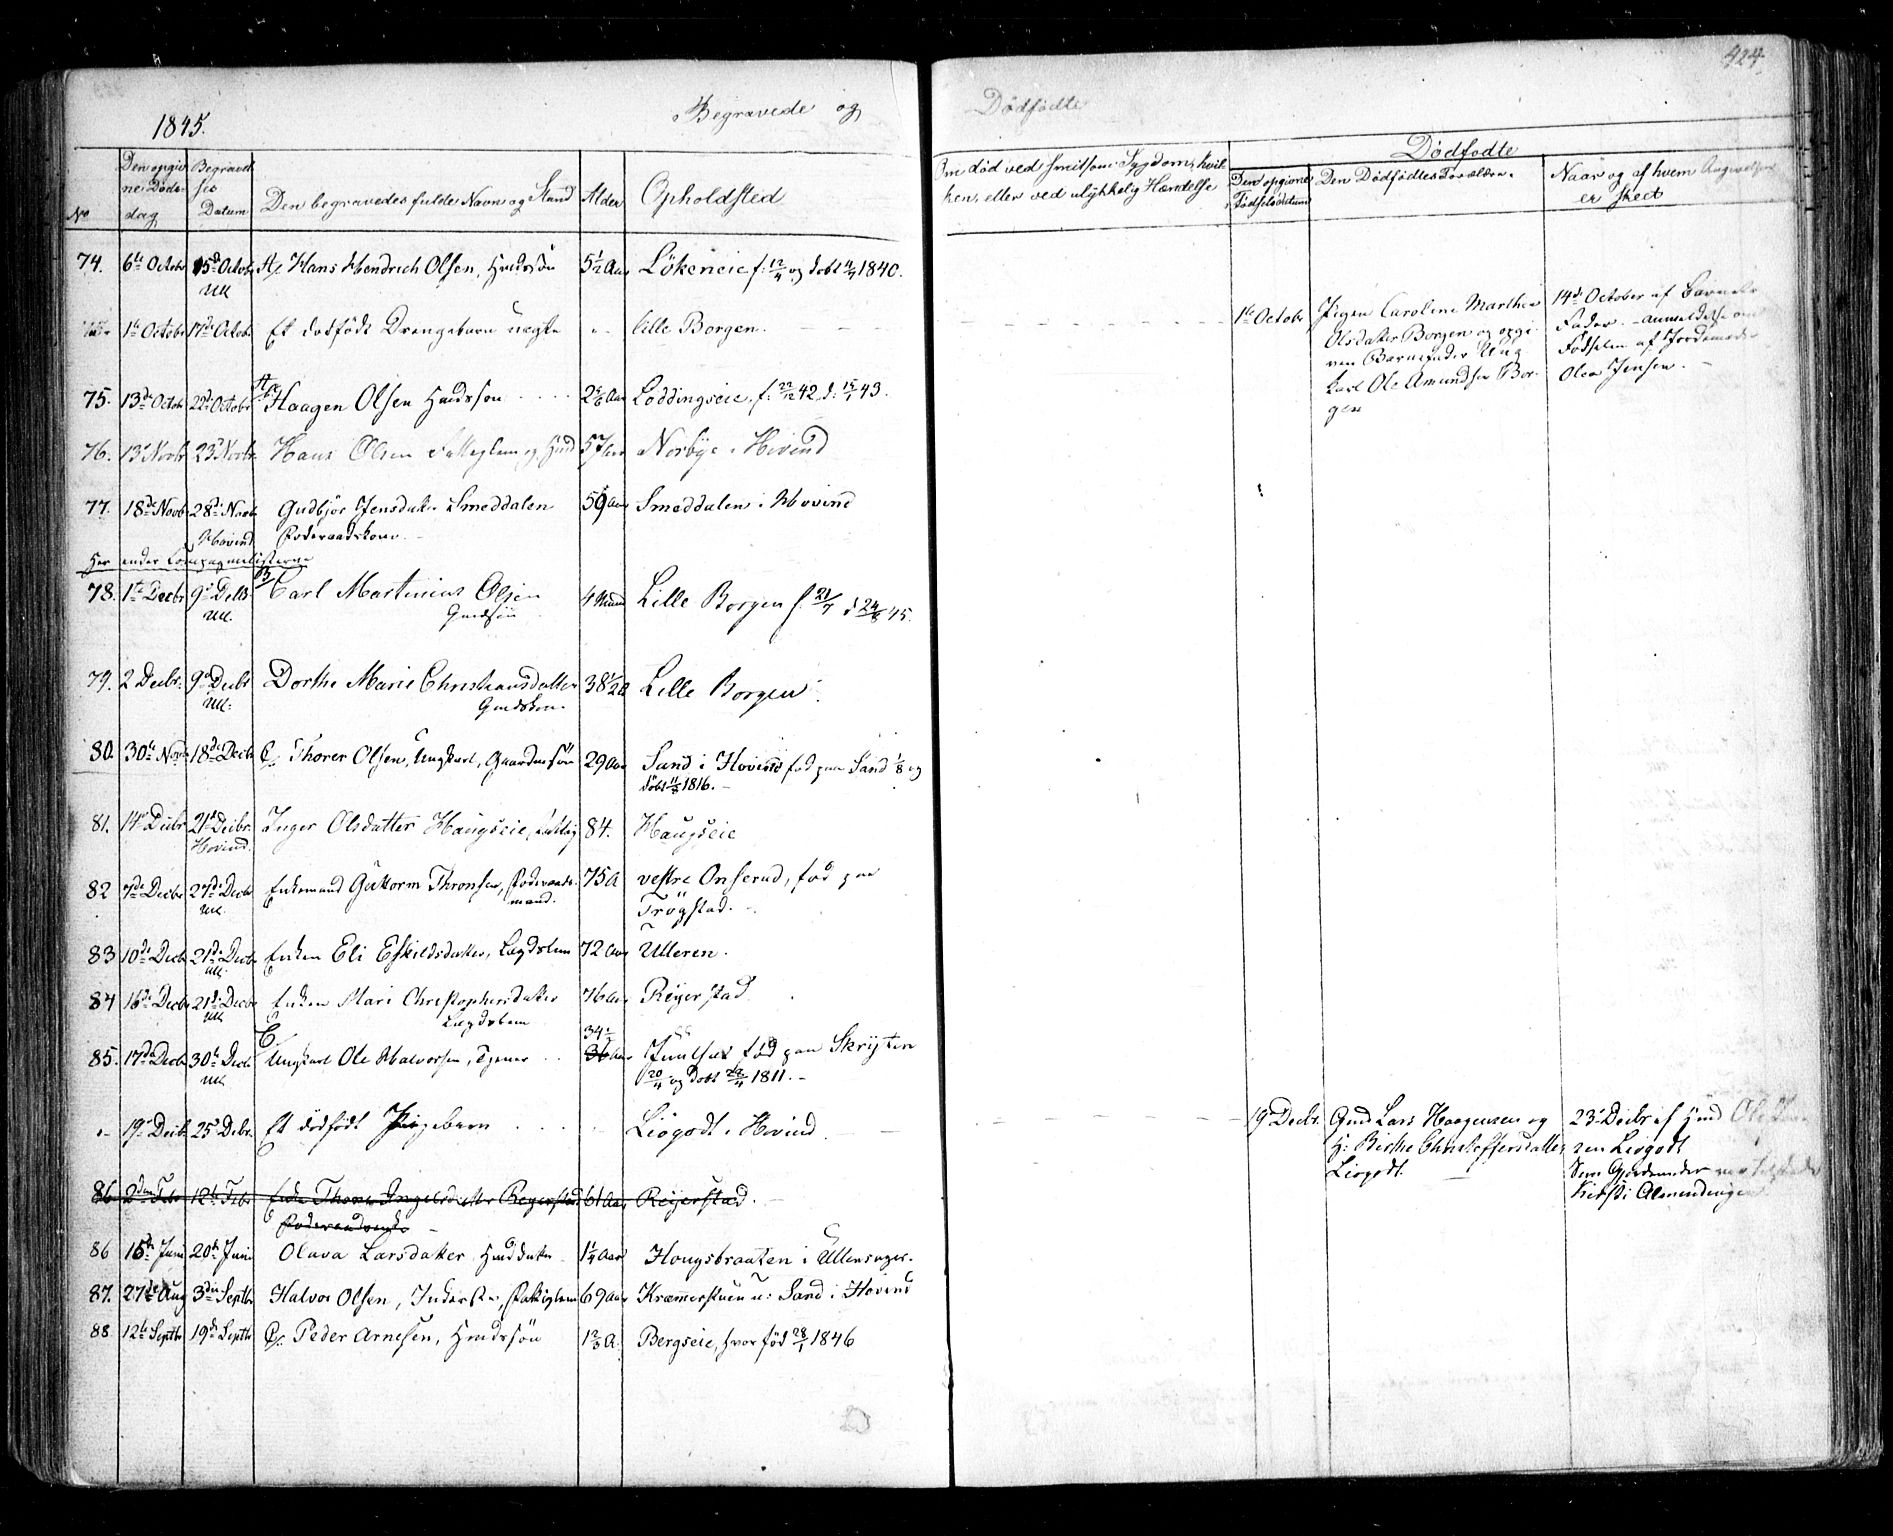 424
1845.
Begravede og
Dødfødte
No
Den opgivne Døds-dag
Begravelses Datum
Den begravedes fulde Navn og Stand
Alder
Opholdsted
Om død ved smitsom Sygdom, hvilken, eller ved ulykkelig Hændelse
Dødfødte
Den opgivne Fødselsdatum
Den Dødfødtes Forældre.
Naar og af hvem Angivelsen er skeet
74. 6te Octobr 15de Octobr Ull A/. Hans Hendrich Olsen, Huusmds søn 5 1/2 Aar Lökeneie f: 12/4 og døbt 1840.
1te Octobr 17de Octobr Et dødfødt Drengebarn uægte lille Borgen.
1te Octobr
Pigen Caroline Marthea
Olsdatter Borgen og opgi-
ven Barnefader Ung
karl Ole Amundsen Bor-
gen
14de October af Barnets
Fader. - Anmeldelse om
Fødselen af Jordemoder
Olea Jensen. -
75. 13de Octobr 22de Octobr Haagen Olsen 2 5/6 Aar Løddingseie, f: 22/12 42, d: 15/1 43.
76. 13 Novbr 23 Novbr Hans Olsen 57 Norbye i Hovind
77. 18de Novb 28de Novb Hovind Gudbjør Jensdatter Smeddalen 59 Aar Smeddalen i Hovind
Foderaadskone. -
Her ender Compagnielisterne
78. 1te Decbr 9 Decbr Ull. B/ Carl Martinius Olsen 4 Lille Borgen f. 21/7 d 24/8 45.
79. 2 Decbr. 9de Decbr Ull. Dorthe Marie Christiansdatter 38 1/2 Lille Borgen.
80. 30te Novb 18de Decb C/. Thorer Olsen, Ungkarl, Gaardmssøn 29 Aar Sand i Hovind fød paa Sand 1/8 og
døbt 11/8 1816. -
81. 14 Decbr 21 Decbr. Hovind. Inger Olsdatter Haugseie, 84. Haugseie
82 7de Decbr 27de Decb Ull. Enkemand Guttorm Thronsen, Foderaads-
mand. 75 A vestre Onserud, fød paa
Trögstad. -
83 10de Decb 21de Decbr Ull. Enken Eli Eskildsdatter, Lægdslem 72 Aar Ulleren.
84 16de Decbr 21de Decbr Ull Enken Mari Christophersdatter
Lægdslem 76 Aar Reyerstad
85. 17de Decbr 30te Decb Ull C. Ungkarl Ole Halvorsen, Tjener 34 36 Aar fød paa Skrytten
20/4 og døbt 22/4 1811. -
19 Decb 25 Debr. Et dödfödt Pigebarn Liogodt i Hovind
19 Decbr. Gmd Lars Haagensen og
H: Birthe Christoffersdatter
Liogodt.
23 Decbr af Hmd Ole
Liogodt
Som Gjordemoder var tilstede
Kirsti Almendingen
86 2den Febr 12te Febr Enke Thore Ingebrdatter Reyerstad 61 Aar Reyerstad. -
86 15de Juni 20de Juni Oluva Larsdatter 1 1/4 Aar Hougsbraaten i Ullensager.
87. 27de Aug 3die Septbr Halvor Olsen, Inderste, 69 Aar Kræmmerstuen u: Sand i Hovind
88. 12te Septbr 19de Septbr C/. Peder Arnesen, 1 2/3 A. Bergseie, hvor fød 28/1 1846